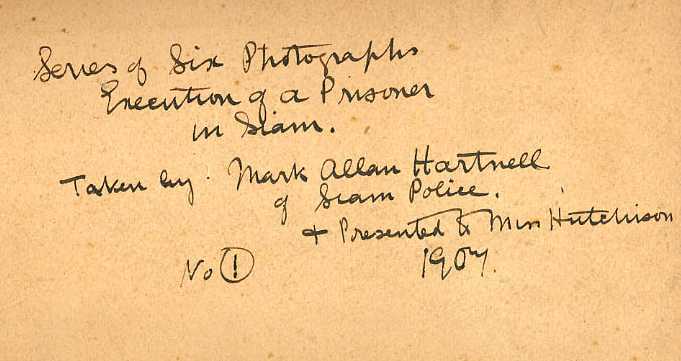 Series of Six Photographs
Execution of a Prisoner
in Siam.
Taken by Mark Allan Hartnell
of Siam Police.
+ Presented to Miss Hutchison
No 1
1907.